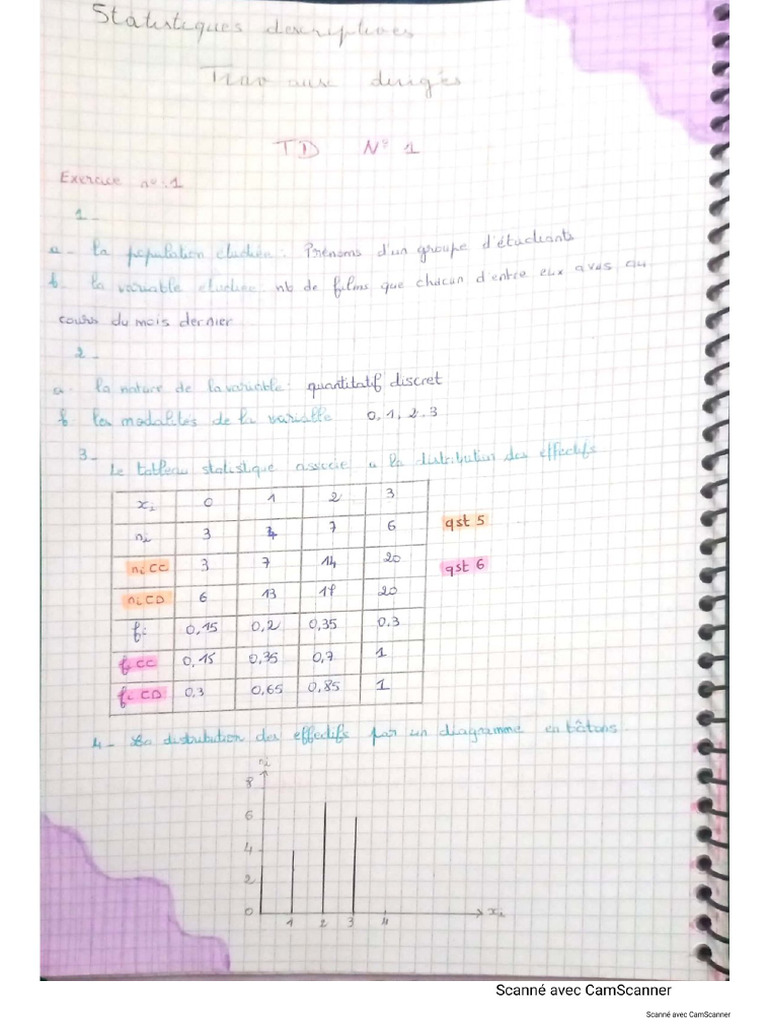 Statistiques descriptives
Travaux dirigés
TD N° 1
Exercice n°:1
1-
a- la population étudiée: Prénoms d'un groupe d'étudiants
b la variable étudiée nb de films que chacun d'entre eux avus au
cours du mois dernier
2-
a- la nature de la variable: quantitatif discret
b les modalités de la variable 0,1,2,3
3- Le tableau statistique associé a la distribution des effectifs
xi 0 1 2 3
ni 3 4 7 6 qst 5
ni CC 3 7 14 20 qst 6
ni CD 6 13 17 20
fi 0,15 0,2 0,35 0.3
fi CC 0,15 0,35 0,7 1
fi CD 0.3 0,65 0,85 1
4- La distribution des effectifs par un diagramme en bâtons
ni
8
6
4
2
0 1 2 3 4 xi
Scanné avec CamScanner
Scanné avec CamScanner